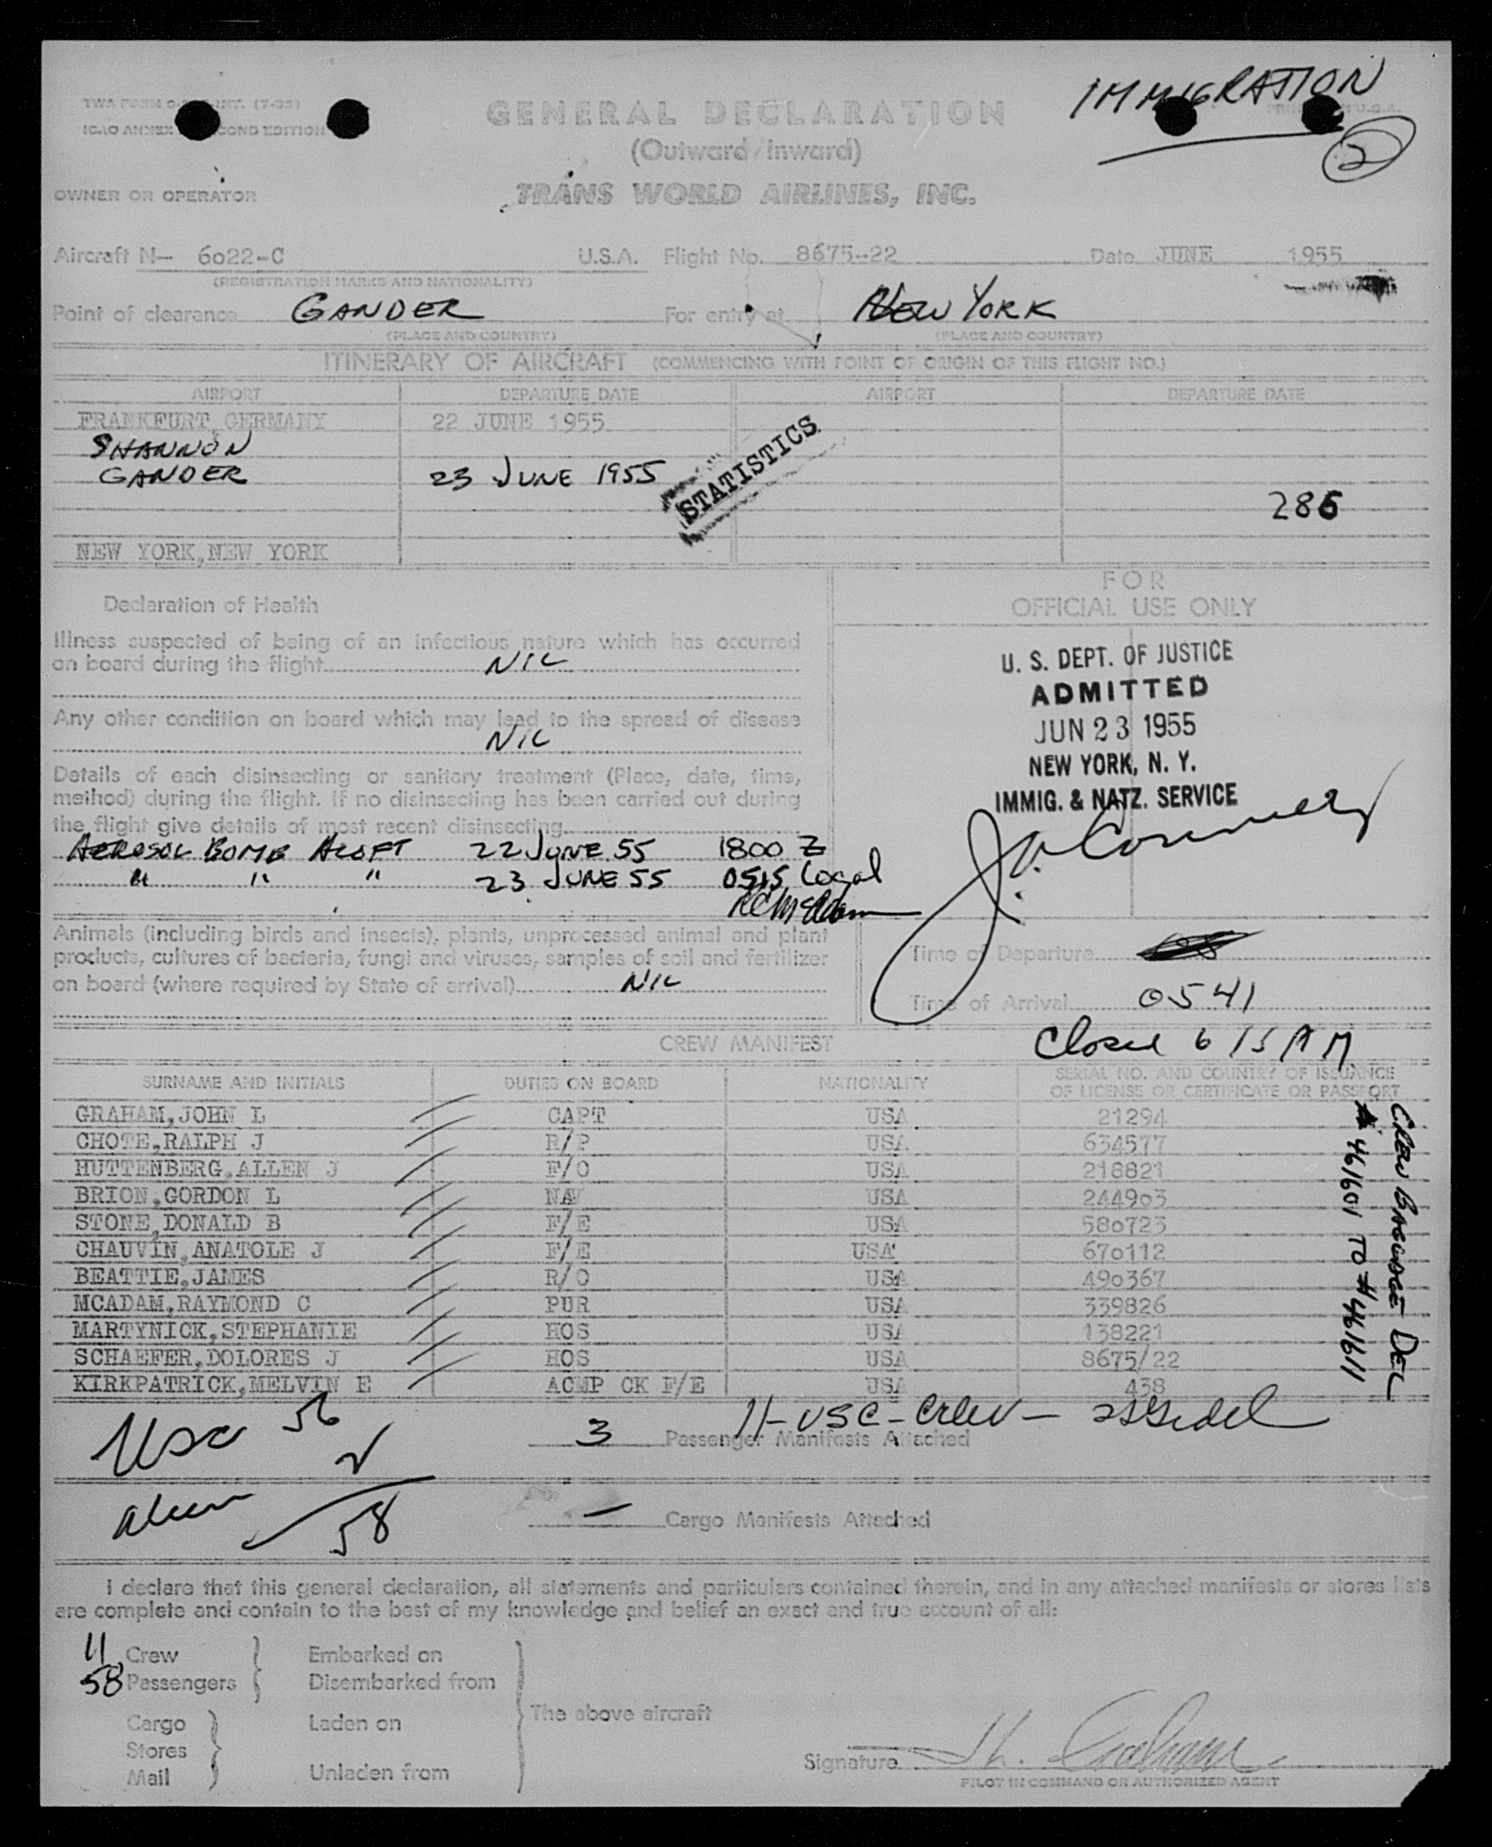 IMMIGRATION
2
TWA FORM
ICAO ANNEX SECOND EDITION
GENERAL DECLARATION
(Outward/Inward)
OWNER OR OPERATOR
TRANS WORLD AIRLINES, INC.
Aircraft N- 6022-C U.S.A. Flight No. 8675-22 Date JUNE 1955
(REGISTRATION MARKS AND NATIONALITY)
Point of clearance GANDER For entry at NEW YORK
(PLACE AND COUNTRY) (PLACE AND COUNTRY)
ITINERARY OF AIRCRAFT (COMMENCING WITH POINT OF ORIGIN OF THIS FLIGHT NO.)
AIRPORT DEPARTURE DATE AIRPORT DEPARTURE DATE
FRANKFURT, GERMANY 22 JUNE 1955
SHANNON
GANDER 23 JUNE 1955
STATISTICS
286
NEW YORK, NEW YORK
FOR
OFFICIAL USE ONLY
Declaration of Health
Illness suspected of being of an infectious nature which has occurred
on board during the flight NIL
Any other condition on board which may lead to the spread of disease
NIL
Details of each disinsecting or sanitary treatment (Place, date, time,
method) during the flight. If no disinsecting has been carried out during
the flight give details of most recent disinsecting
AEROSOL BOMB ALOFT 22 JUNE 55 1800 Z
" " " 23 JUNE 55 0515 Local
RCMcAdam
U. S. DEPT. OF JUSTICE
ADMITTED
JUN 23 1955
NEW YORK, N. Y.
IMMIG. & NATZ. SERVICE
Animals (including birds and insects), plants, unprocessed animal and plant
products, cultures of bacteria, fungi and viruses, samples of soil and fertilizer
on board (where required by State of arrival) NIL
Time of Departure
Time of Arrival 0541
Closed 6 15 AM
CREW MANIFEST
SURNAME AND INITIALS DUTIES ON BOARD NATIONALITY SERIAL NO. AND COUNTRY OF ISSUANCE
OF LICENSE OR CERTIFICATE OR PASSPORT
GRAHAM, JOHN L CAPT USA 21294
CHOTE, RALPH J R/P USA 634577
HUTTENBERG, ALLEN J F/O USA 218821
BRION, GORDON L NAV USA 244903
STONE, DONALD B F/E USA 580723
CHAUVIN, ANATOLE J F/E USA 670112
BEATTIE, JAMES R/O USA 490367
MCADAM, RAYMOND C PUR USA 339826
MARTYNICK, STEPHANIE HOS USA 138221
SCHAEFER, DOLORES J HOS USA 8675/22
KIRKPATRICK, MELVIN E ACMP CK F/E USA 438
CREW BAGGAGE DEL
# 461601 TO # 461611
11-USC-Crew-
USC 56
3 Passenger Manifests Attached
2
Alien
58
— Cargo Manifests Attached
I declare that this general declaration, all statements and particulars contained therein, and in any attached manifests or stores lists
are complete and contain to the best of my knowledge and belief an exact and true account of all:
11 Crew Embarked on
58 Passengers Disembarked from
The above aircraft
Cargo Laden on
Stores
Mail Unladen from
Signature J L. Graham
PILOT IN COMMAND OR AUTHORIZED AGENT